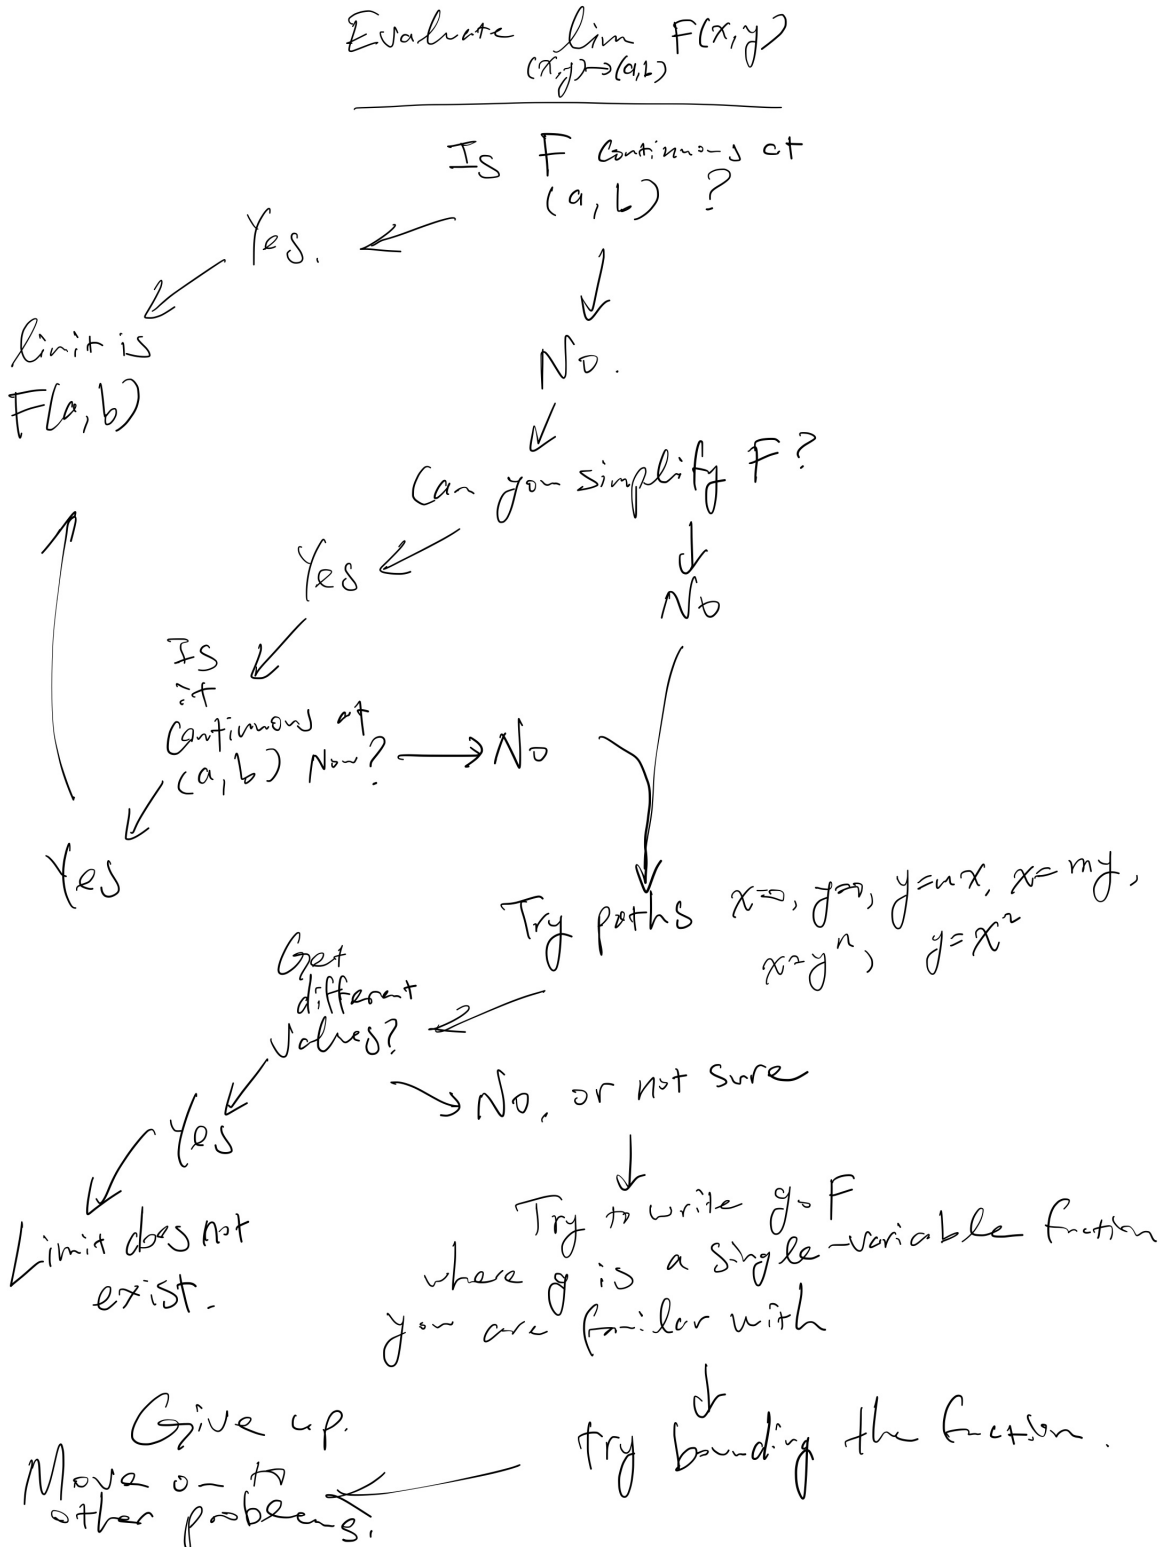 Evaluate lim F(x,y)
(x,y)→(a,b)
Is F continuous at
(a,b) ?
Yes.
limit is
F(a,b)
No.
Can you simplify F?
Yes
No
Is
it
Continuous at
(a,b) Now?
No
Yes
Try paths x=0, y=0, y=mx, x=my,
x=yⁿ, y=x²
Get
different
values?
No, or not sure
Yes
Limit does not
exist.
Try to write g∘F
where g is a single-variable function
you are familar with
try bounding the function.
Give up.
Move on to
other problems.